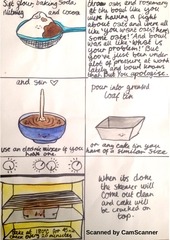 Sift your baking soda
nutmeg and cocoa
throw oats and rosemary
at the bowl like you
were having a fight
about oats and were all
like "you want oats? heres
some oats!" And bowl
was all like "what is
your problem!" But
you've just been under
lots of pressure at work
lately and bowl knows
that. But you apologise.
and stir
use an electric mixer if you
have one.
pour into greased
loaf tin
or any cake tin you
have of a similar size.
Bake at 180°C for 45 min
When its done
the skewer will
come out clean
and cake will
be cracked on
top.
Scanned by CamScanner